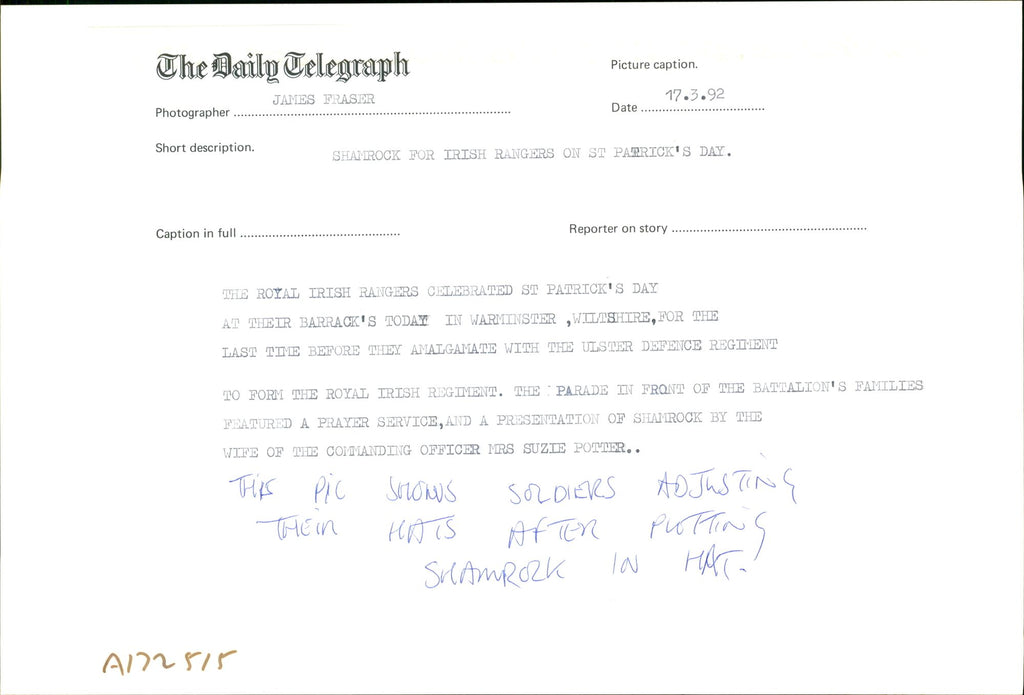 The Daily Telegraph
Picture caption.
Photographer JAMES FRASER
Date 17.3.92
Short description. SHAMROCK FOR IRISH RANGERS ON ST PATRICK'S DAY.
Caption in full
Reporter on story
THE ROYAL IRISH RANGERS CELEBRATED ST PATRICK'S DAY
AT THEIR BARRACK'S TODAY IN WARMINSTER ,WILTSHIRE,FOR THE
LAST TIME BEFORE THEY AMALGAMATE WITH THE ULSTER DEFENCE REGIMENT
TO FORM THE ROYAL IRISH REGIMENT. THE PARADE IN FRONT OF THE BATTALION'S FAMILIES
FEATURED A PRAYER SERVICE,AND A PRESENTATION OF SHAMROCK BY THE
WIFE OF THE COMMANDING OFFICER MRS SUZIE POTTER..
THIS PIC SHOWS SOLDIERS ADJUSTING
THEIR HATS AFTER PUTTING
SHAMROCK IN HAT.
A172515